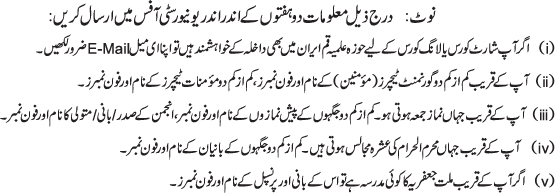 نوٹ: درج ذیل معلومات دو ہفتوں کے اندر اندر یونیورسٹی آفس میں ارسال کریں:
(i) اگر آپ شارٹ کورس یا لانگ کورس کے لیے حوزہ علمیہ قم ایران میں بھی داخلہ کے خواہشمند ہیں تو اپنا ای میل E-Mail ضرور لکھیں۔
(ii) آپ کے قریب کم از کم دو گورنمنٹ ٹیچرز (مؤمنین) کے نام اور فون نمبرز، کم از کم دو مؤمنات ٹیچرز کے نام اور فون نمبرز۔
(iii) آپ کے قریب جہاں نماز جمعہ ہوتی ہو۔ کم از کم دو جگہوں کے پیش نمازوں کے نام اور فون نمبر، انجمن کے صدر/بانی/متولی کا نام اور فون نمبر۔
(iv) آپ کے قریب جہاں محرم الحرام کی عشرہ مجالس ہوتی ہیں۔ کم از کم دو جگہوں کے بانیان کے نام اور فون نمبر۔
(v) اگر آپ کے قریب ملت جعفریہ کا کوئی مدرسہ ہے تو اس کے بانی اور پرنسپل کے نام اور فون نمبرز۔